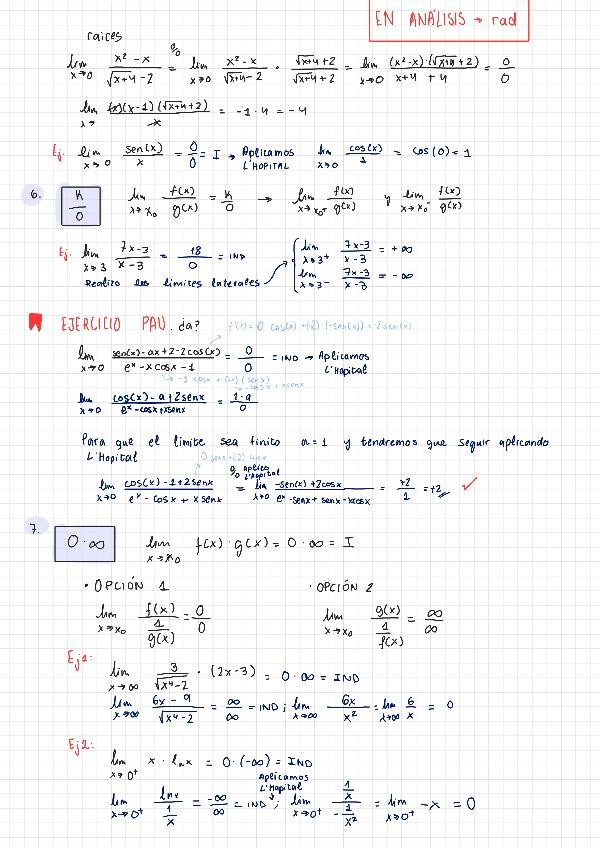 EN ANÁLISIS → rad
raíces
lim x→0 x² - x / √x+4 - 2 = 0/0 lim x→0 x² - x / √x+4 - 2 · √x+4 + 2 / √x+4 + 2 = lim x→0 (x² - x)·(√x+4 + 2) / x+4 + 4 = 0/0
lim x→ (x)(x-1)(√x+4 + 2) / x = -1·4 = -4
Ej. lim x→0 sen(x) / x = 0/0 = I → Aplicamos L'HOPITAL lim x→0 cos(x) / 1 = cos(0) = 1
6. K/0 lim x→x₀ f(x)/g(x) = K/0 → lim x→x₀⁺ f(x)/g(x) y lim x→x₀⁻ f(x)/g(x)
Ej. lim x→3 7x-3 / x-3 = 18/0 = IND
Realizo los límites laterales
lim x→3⁺ 7x-3 / x-3 = +∞
lim x→3⁻ 7x-3 / x-3 = -∞
EJERCICIO PAU. ¿a?
f'(x) = 0 cos(x) + (2) (-sen(x)) = -2 sen(x)
lim x→0 sen(x) - ax + 2 - 2cos(x) / eˣ - x cosx - 1 = 0/0 = IND → Aplicamos L'Hopital
→ -1 cosx + (-x) (sen x)
→ -cosx + xsenx
lim x→0 cos(x) - a + 2senx / eˣ - cosx + xsenx = 1-a / 0
Para que el límite sea finito a = 1 y tendremos que seguir aplicando
L'Hopital
0 senx + (2) cosx
lim x→0 cos(x) - 1 + 2senx / eˣ - cosx + x senx = 0/0 Aplico L'Hopital lim x→0 -sen(x) + 2cosx / eˣ - senx + senx - xcosx = +2 / 1 = +2 ✓
7. 0·∞ lim x→x₀ f(x)·g(x) = 0·∞ = I
• OPCIÓN 1 · OPCIÓN 2
lim x→x₀ f(x) / 1/g(x) = 0/0 lim x→x₀ g(x) / 1/f(x) = ∞/∞
Ej1:
lim x→∞ 3 / √x⁴-2 · (2x-3) = 0·∞ = IND
lim x→∞ 6x - 9 / √x⁴-2 = ∞/∞ = IND; lim x→∞ 6x / x² = lim x→∞ 6/x = 0
Ej2:
lim x→0⁺ x · lnx = 0·(-∞) = IND
Aplicamos L'Hopital
lim x→0⁺ lnx / 1/x = -∞/∞ = IND; lim x→0⁺ 1/x / -1/x² = lim x→0⁺ -x = 0